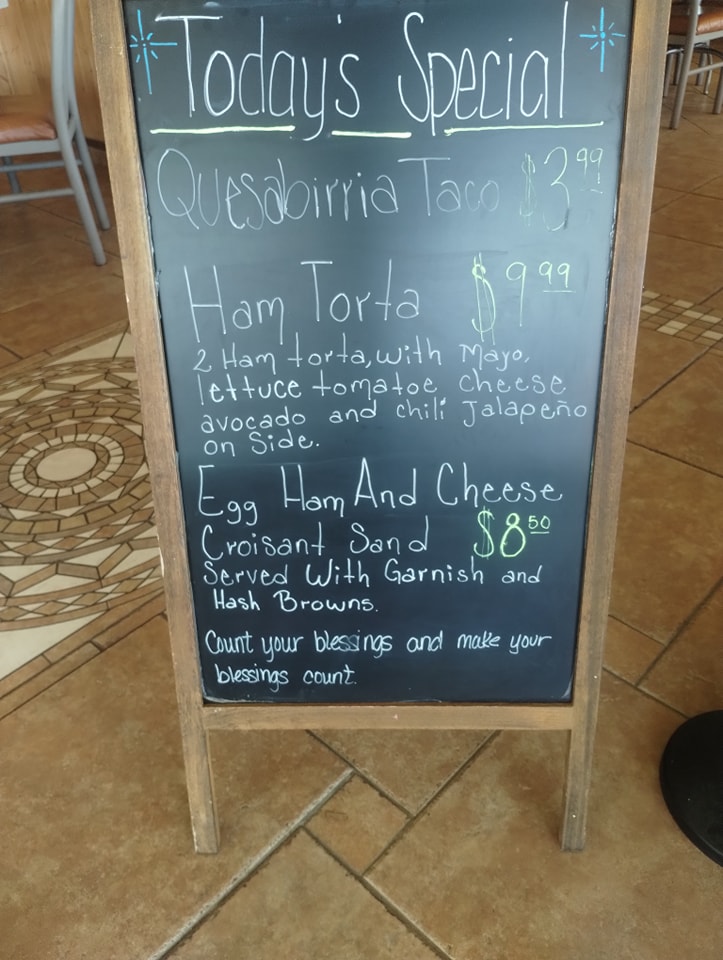 Today's Special
Quesabirria Taco $3.99
Ham Torta $9.99
2 Ham torta, with Mayo,
lettuce tomatoe cheese
avocado and chili Jalapeño
on Side.
Egg Ham And Cheese
Croisant Sand $8.50
Served With Garnish and
Hash Browns.
Count your blessings and make your
blessings count.